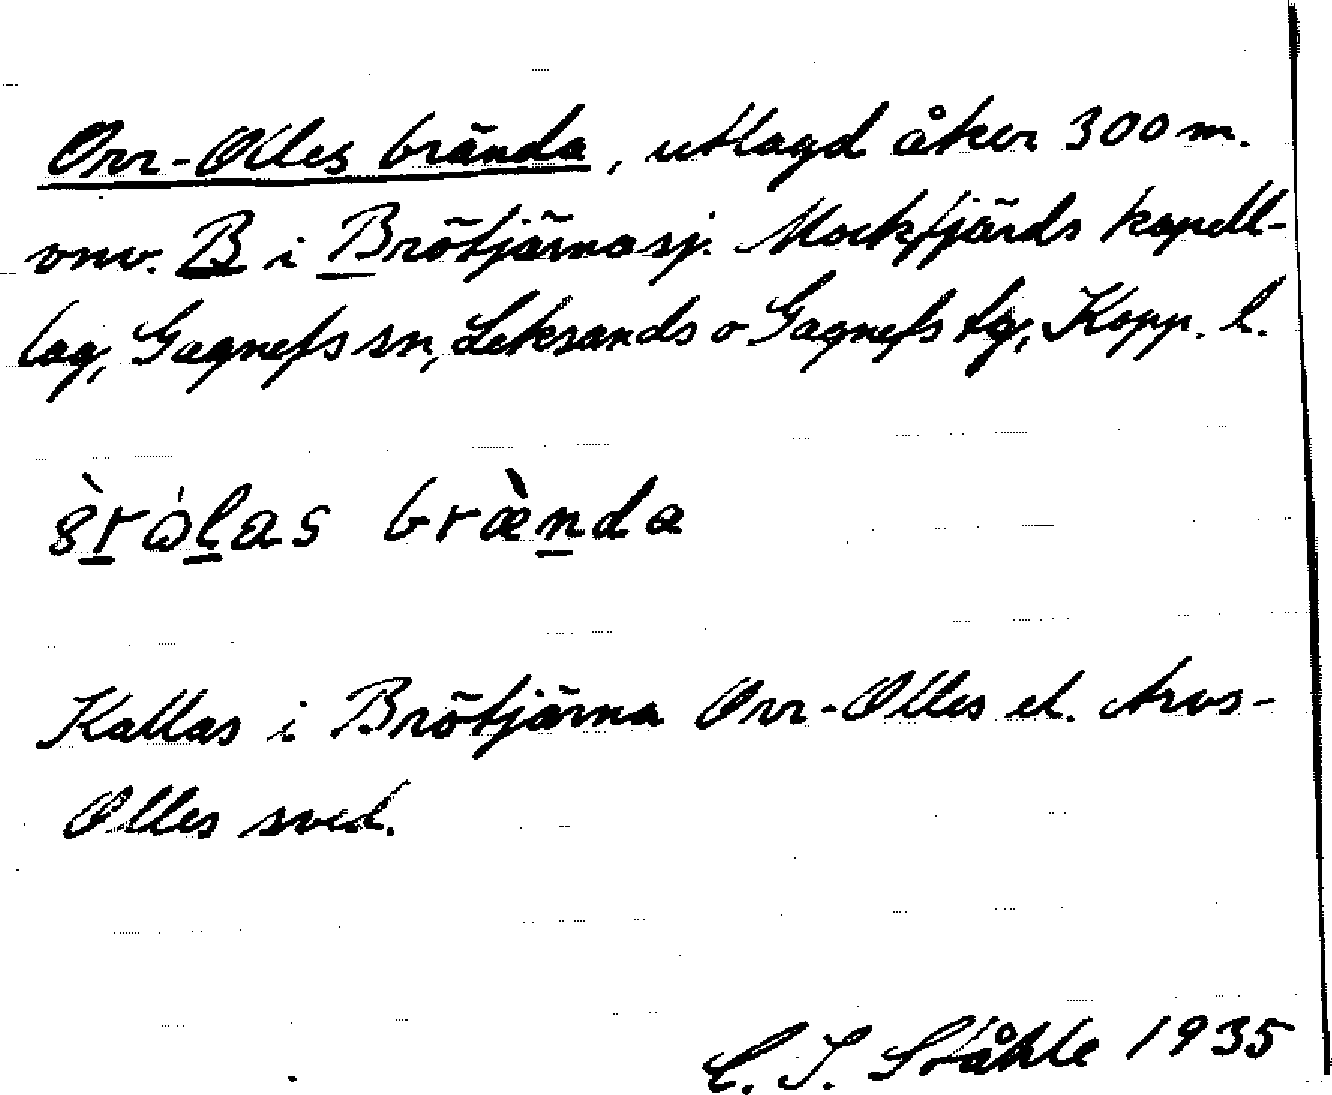 Orr-Olles brända, utlagd åker 300 m.
onv. B i Brötjärnasj. Mockfjärds kapell-
lag, Gagnefs sn, Leksands o Gagnefs tg, Kopp. l.
brænda
Kallas i Brötjärna Orr-Olles el.
Olles sved.
C. I. Ståhle 1935